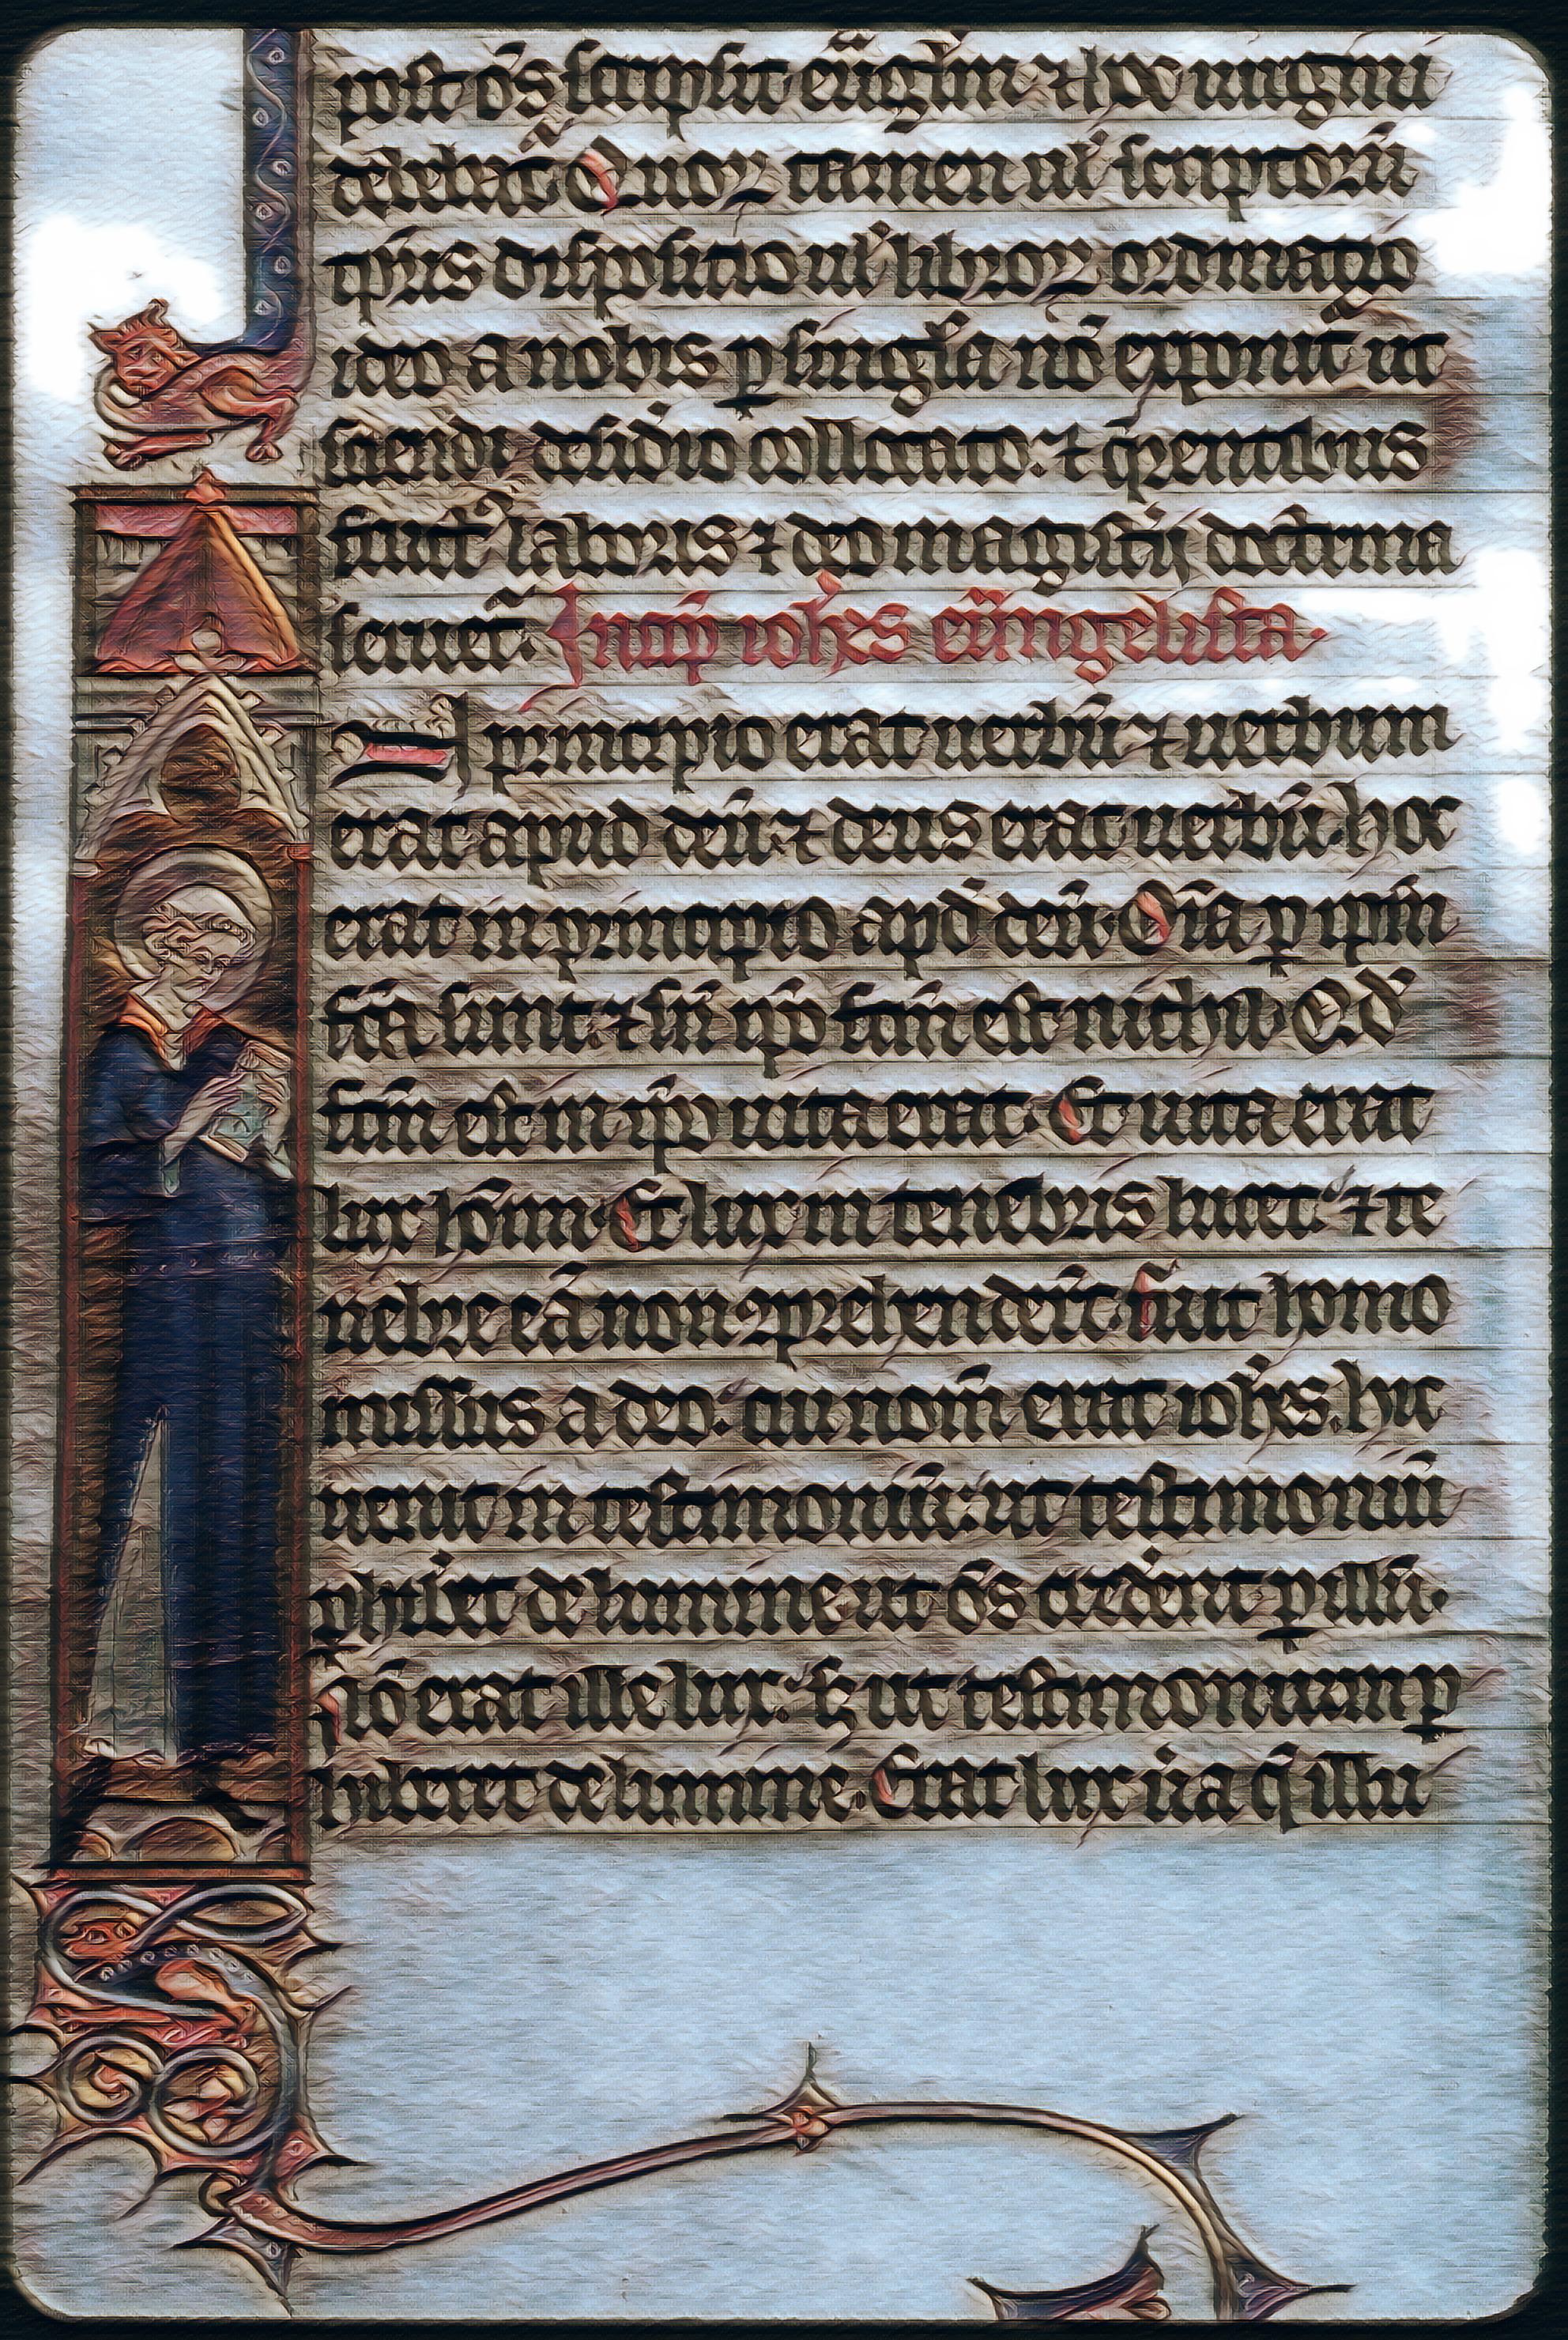 post o̅s scripsit eu̅gl̅m ⁊ hic uirgini
debebat̅. Quoꝝ tamen ul̓ scriptoru̅
t̅pr̅is dispositio ul̓ libroꝝ ordinatio
ideo a nobis ꝑ singl̅a no̅ exponit̅ ut
sciendi desid̓io collocato. ⁊ q̅rentibus
fruct᷒ laboris ⁊ deo magist̓ij doctrina
seruet̅. Incip̅ ioh̅es eu̅ngelista.
In principio erat uerbu̅ ⁊ uerbum
erat apud deu̅. ⁊ deus erat uerbu̅. hoc
erat in principio apd̓ deu̅. Om̅ia ꝑ ip̅m
fc̅a sunt. ⁊ sn̅ ip̅o fc̅m est nichil. Qd̓
fc̅m est in ip̅o uita erat. Et uita erat
lux ho̅inu̅. Et lux in tenebris lucet. ⁊ te
nebre ea̅ non ꝯprehender̅t. fuit homo
missus a deo. cui nom̅ erat ioh̅es. hic
uenit in testimoniu̅. ut testimoniu̅
phib̓et de lumine. ut o̅s crede̅rent ꝑ illu̅.
No̅ erat ille lux. sꝫ ut testimonium ꝑ
hiberet de lumine. Erat lux u̅a q̅ illu